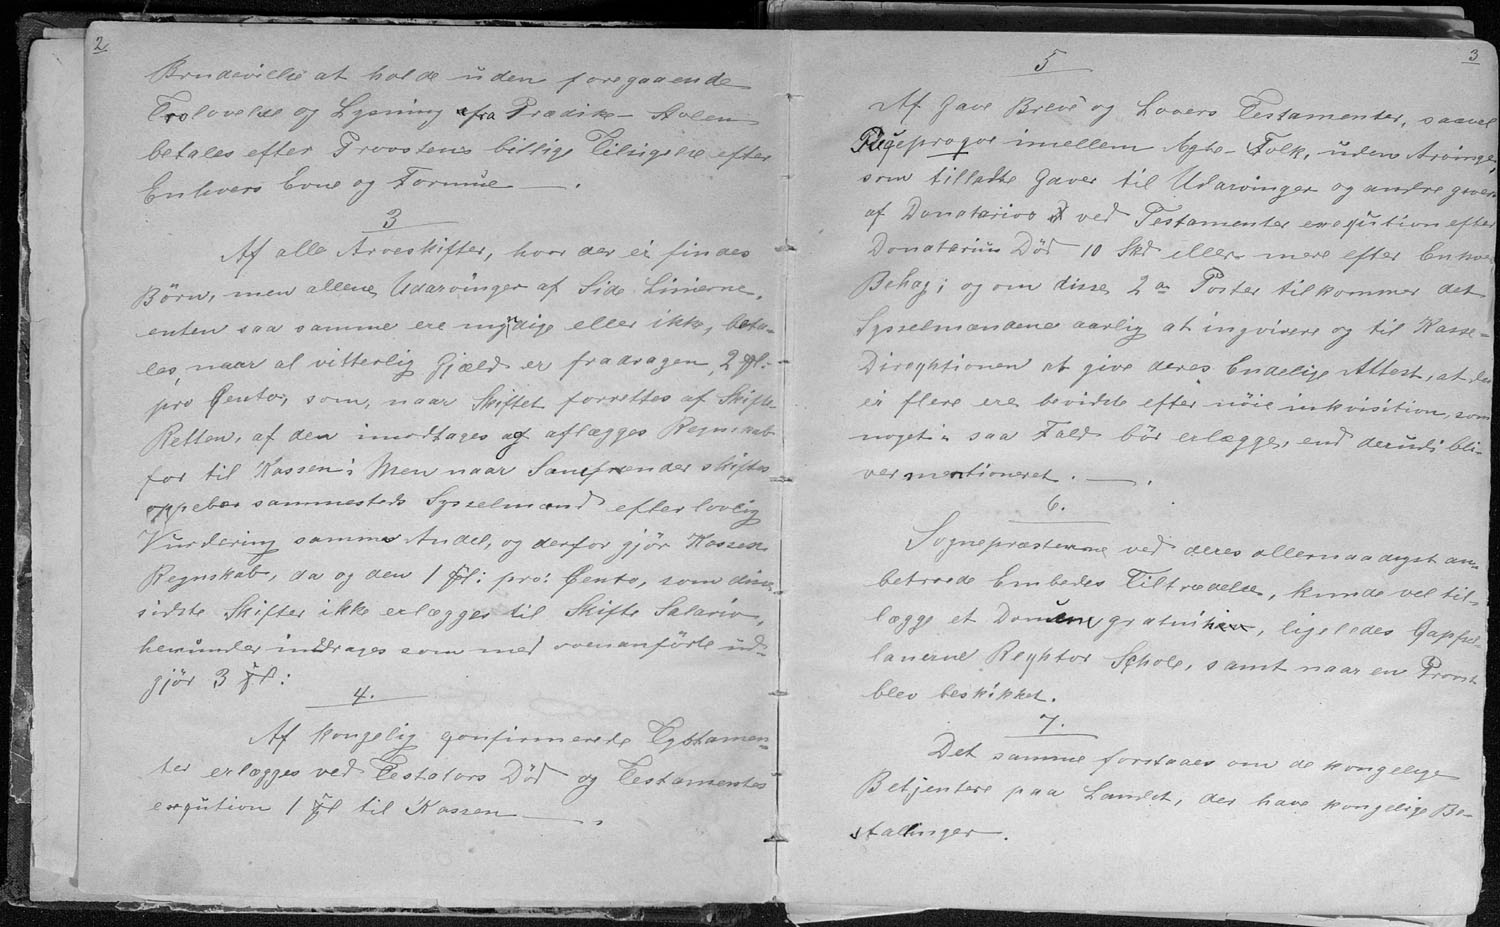 2
Brudevielse at holde uden foregaaende
Trolovelse og Lysning fra Prædike-Stolen
betales efter Provstens billige Tilsigelse efter
Enhvers Evne og Formue — .
3
Af alle Arveskifter, hvor der ei findes
Börn, men allene Udarvinger af Side Linierne,
enten saa samme ere mÿdige eller ikke, beta-
les, naar al vitterlig Gjæld er fradragen, 2 fl:
pro Cento, som, naar Skiftet forrettes af Skifte-
Retten, af den imodtages og aflægges Regnskab
for til Kassen; Men naar Samfrænder skiftes
oppebær sammesteds Sysselmand efter lovlig
Vurdering samme Andel, og derfor gjör Kassen
Regnskab, da og den 1 fl: pro: Cento, som disse
sidste Skifter ikke erlægger til Skifte Salario,
herunder inddrages som med ovenanförte ud-
gjör 3 fl:
4.
Af kongelig confirmerede Testamen-
ter erlægges ved Testators Död og Testamentes
execution 1 fl til Kassen — .
3
5
Af Gave Breve og Lovers Testamenter, saavel
imellem Ægte-Folk, uden Arvinger,
som tilladte Gaver til Udarvinger og andre giver
af Donatarios ved Testamenter execution efter
Donatarius Död 10 Skd eller mere efter Enhver
Behag; og om disse 2de Poster tilkommer det
Sysselmændene aarlig at inqvirere og til Kasse-
Directionen at give deres Endelige Attest, at der
ei flere ere bevidste efter nöie inkvisition, som
noget i saa Fald bör erlægge, end derudi bli-
ver mentioneret . — .
6.
Sognepræsterne ved deres allernaadigst an-
betroede Embedes Tiltrædelse, kunde vel til-
lægge et Donum gratuitum, ligeledes Cappel-
lanerne Rector Schole, samt naar en Provst
blev beskikket.
7.
Det samme forstaaes om de kongelige
Betjentere paa Landet, der have kongelige Be-
stallinger .